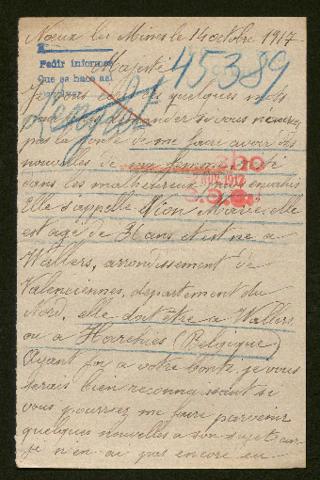 Nœux les Mines le 14 octobre 1917
Pedir informes
Que se hace así
Majesté
45389
Je vous ces quelques mots
pour vous demander si vous n'auriez
pas la bonté de me faire avoir des
nouvelles de ma femme
dans les malheureux pays envahis
Elle s'appelle Marie elle
est agé de 36 ans et est né a
Wallers, arrondissement de
Valenciennes, département du
Nord, elle doit être a Wallers
ou a Harchies (Belgique)
Ayant foi a votre bonté, je vous
serais bien reconnaissant si
vous pourriez me faire parvenir
quelques nouvelles a son sujet car
je n'en ai pas encore eu